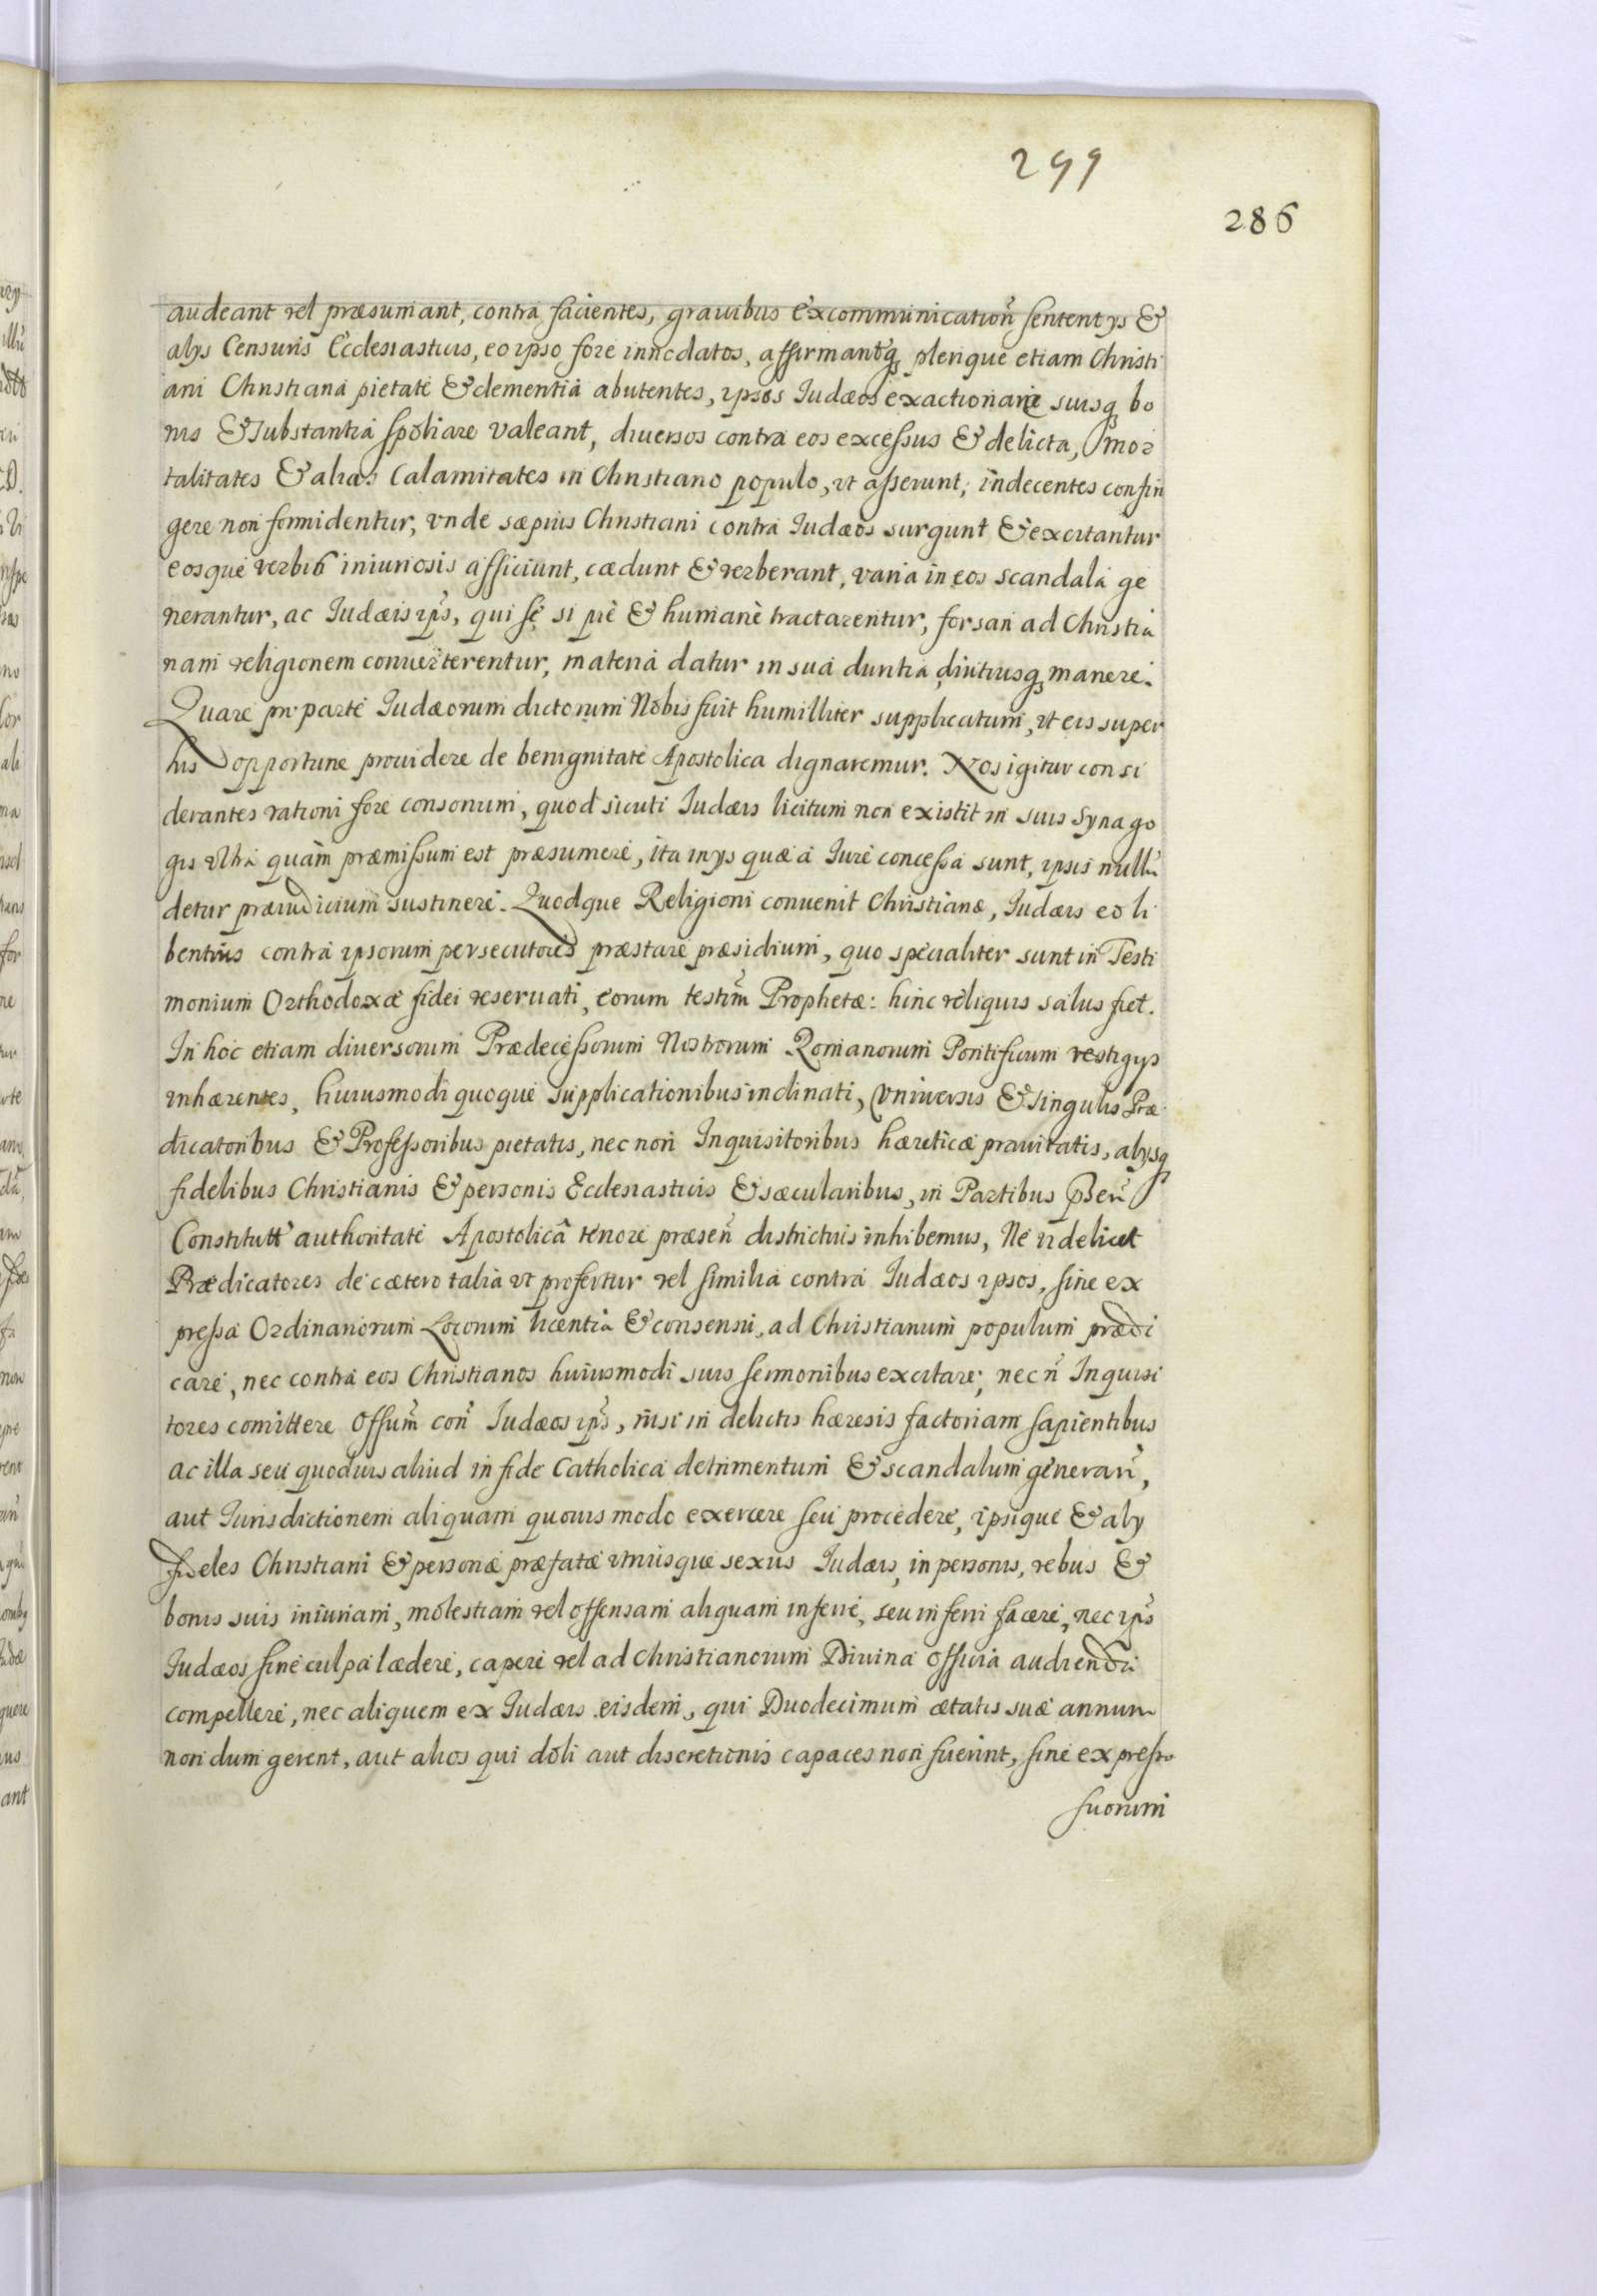 299
286
audeant vel præsumant, contra facientes, grauibus excommunication̄ sententys &
alys Censuris Ecclesiasticis, eo ipso fore innodatos, affirmantq; plerique etiam Christi
ani Christiana pietate & clementia abutentes, ipsos Iudæos exactionare suisq; bo
nis & Substantia spoliare valeant, diuersos contra eos excessus & delicta, mor
talitates & alias Calamitates in Christiano populo, vt asserunt, indecentes confin
gere non formidentur, vnde sæpius Christiani contra Iudæos surgunt & excitantur
eosque verbis iniuriosis afficiunt, cædunt & verberant, varia in eos scandala ge
nerantur, ac Iudæis ip̄s, qui se si piè & humanè tractarentur, forsan ad Christia
nam religionem conuerterentur, materia datur in sua duritia diutiusq; manere.
Quare pr̄ parte Iudæorum dictorum Nobis fuit humiliter supplicatum, vt eis super
his opportune prouidere de benignitate Apostolica dignaremur. Nos igitur consi
derantes rationi fore consonum, quod sicuti Iudæis licitum non existit in suis Synago
gis vltra quàm præmissum est præsumere, ita in ys quæ a Iure concessa sunt, ipsis nullū
detur præiudicium sustinere. Quodque Religioni conuenit Christianæ, Iudæis eo li
bentius contra ipsorum persecutores præstare præsidium, quo specialiter sunt in Testi
monium Orthodoxæ fidei reseruati, eorum testim̄ Prophetæ: hinc reliquis salus fiet.
In hoc etiam diuersorum Prædecessorum Nostrorum Romanorum Pontificum vestigys
inhærentes, huiusmodi quoque supplicationibus inclinati, Vniuersis & singulis Præ
dicatoribus & Professoribus pietatis, nec non Inquisitoribus hæreticæ prauitatis, alysq;
fidelibus Christianis & personis Ecclesiasticis & sæcularibus, in Partibus p̄sen̄
Constitutt̄ authoritate Apostolicâ tenore præsen̄ districtius inhibemus, Ne videlicet
Prædicatores de cætero talia vt profertur vel similia contra Iudæos ipsos, sine ex
pressa Ordinariorum Locorum licentia & consensu, ad Christianum populum prædi
care, nec contra eos Christianos huiusmodi suis sermonibus excitare; nec n̄ Inquisi
tores comittere Offium̄ con̄ Iudæos ip̄s, nisi in delictis hæresis factoriam sapientibus
ac illa seu quoduis aliud in fide Catholica detrimentum & scandalum generan̄,
aut Iurisdictionem aliquam quouis modo exercere seu procedere, ipsique & aly
fideles Christiani & personæ præfatæ vtriusque sexus Iudæis, in personis, rebus &
bonis suis iniuriam, molestiam vel offensam aliquam inferre, seu inferri facere, nec ip̄s
Iudæos sine culpa lædere, capere vel ad Christianorum Diuina officia audienda
compellere, nec aliquem ex Iudæis eisdem, qui Duodecimum ætatis suæ annum
non dum gerent, aut alios qui doli aut discretionis capaces non fuerint, sine expresso
suorum